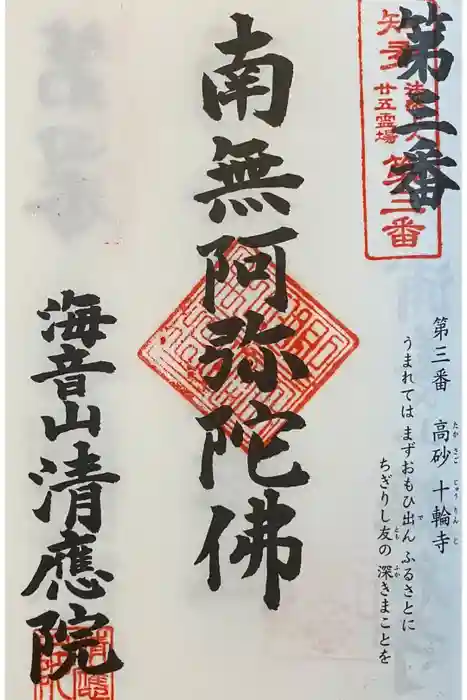 第三番
知多
法然上人
廿五霊場
第三番
第三番 高砂 十輪寺
たか さご じゅう りん じ
うまれては まずおもひ出ん ふるさとに
で
ちぎりし友の 深きまことを
とも ふか
南無阿弥陀佛
海音山清應院